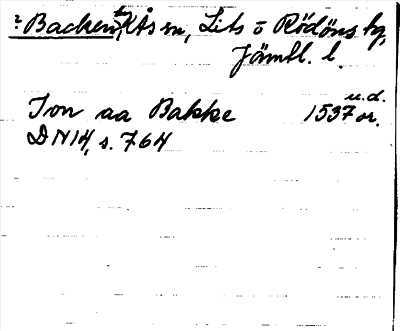 ? Backen, by, Ås sn, Lits o Rödöns tg,
Jämtl. l.
u.d.
Ion aa Bakke 1537 or.
DN 14, s. 764